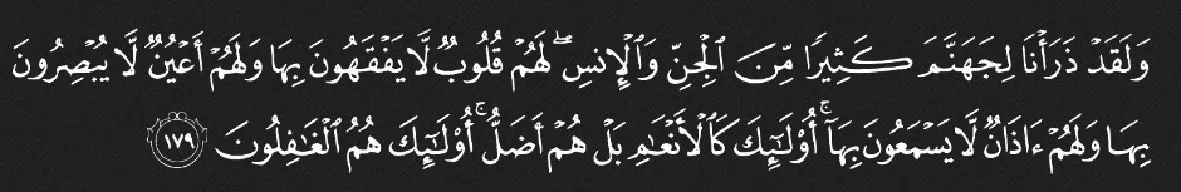 وَلَقَدۡ ذَرَأۡنَا لِجَهَنَّمَ كَثِيرٗا مِّنَ ٱلۡجِنِّ وَٱلۡإِنسِۖ لَهُمۡ قُلُوبٞ لَّا يَفۡقَهُونَ بِهَا وَلَهُمۡ أَعۡيُنٞ لَّا يُبۡصِرُونَ
بِهَا وَلَهُمۡ ءَاذَانٞ لَّا يَسۡمَعُونَ بِهَآۚ أُوْلَٰٓئِكَ كَٱلۡأَنۡعَٰمِ بَلۡ هُمۡ أَضَلُّۚ أُوْلَٰٓئِكَ هُمُ ٱلۡغَٰفِلُونَ ١٧٩